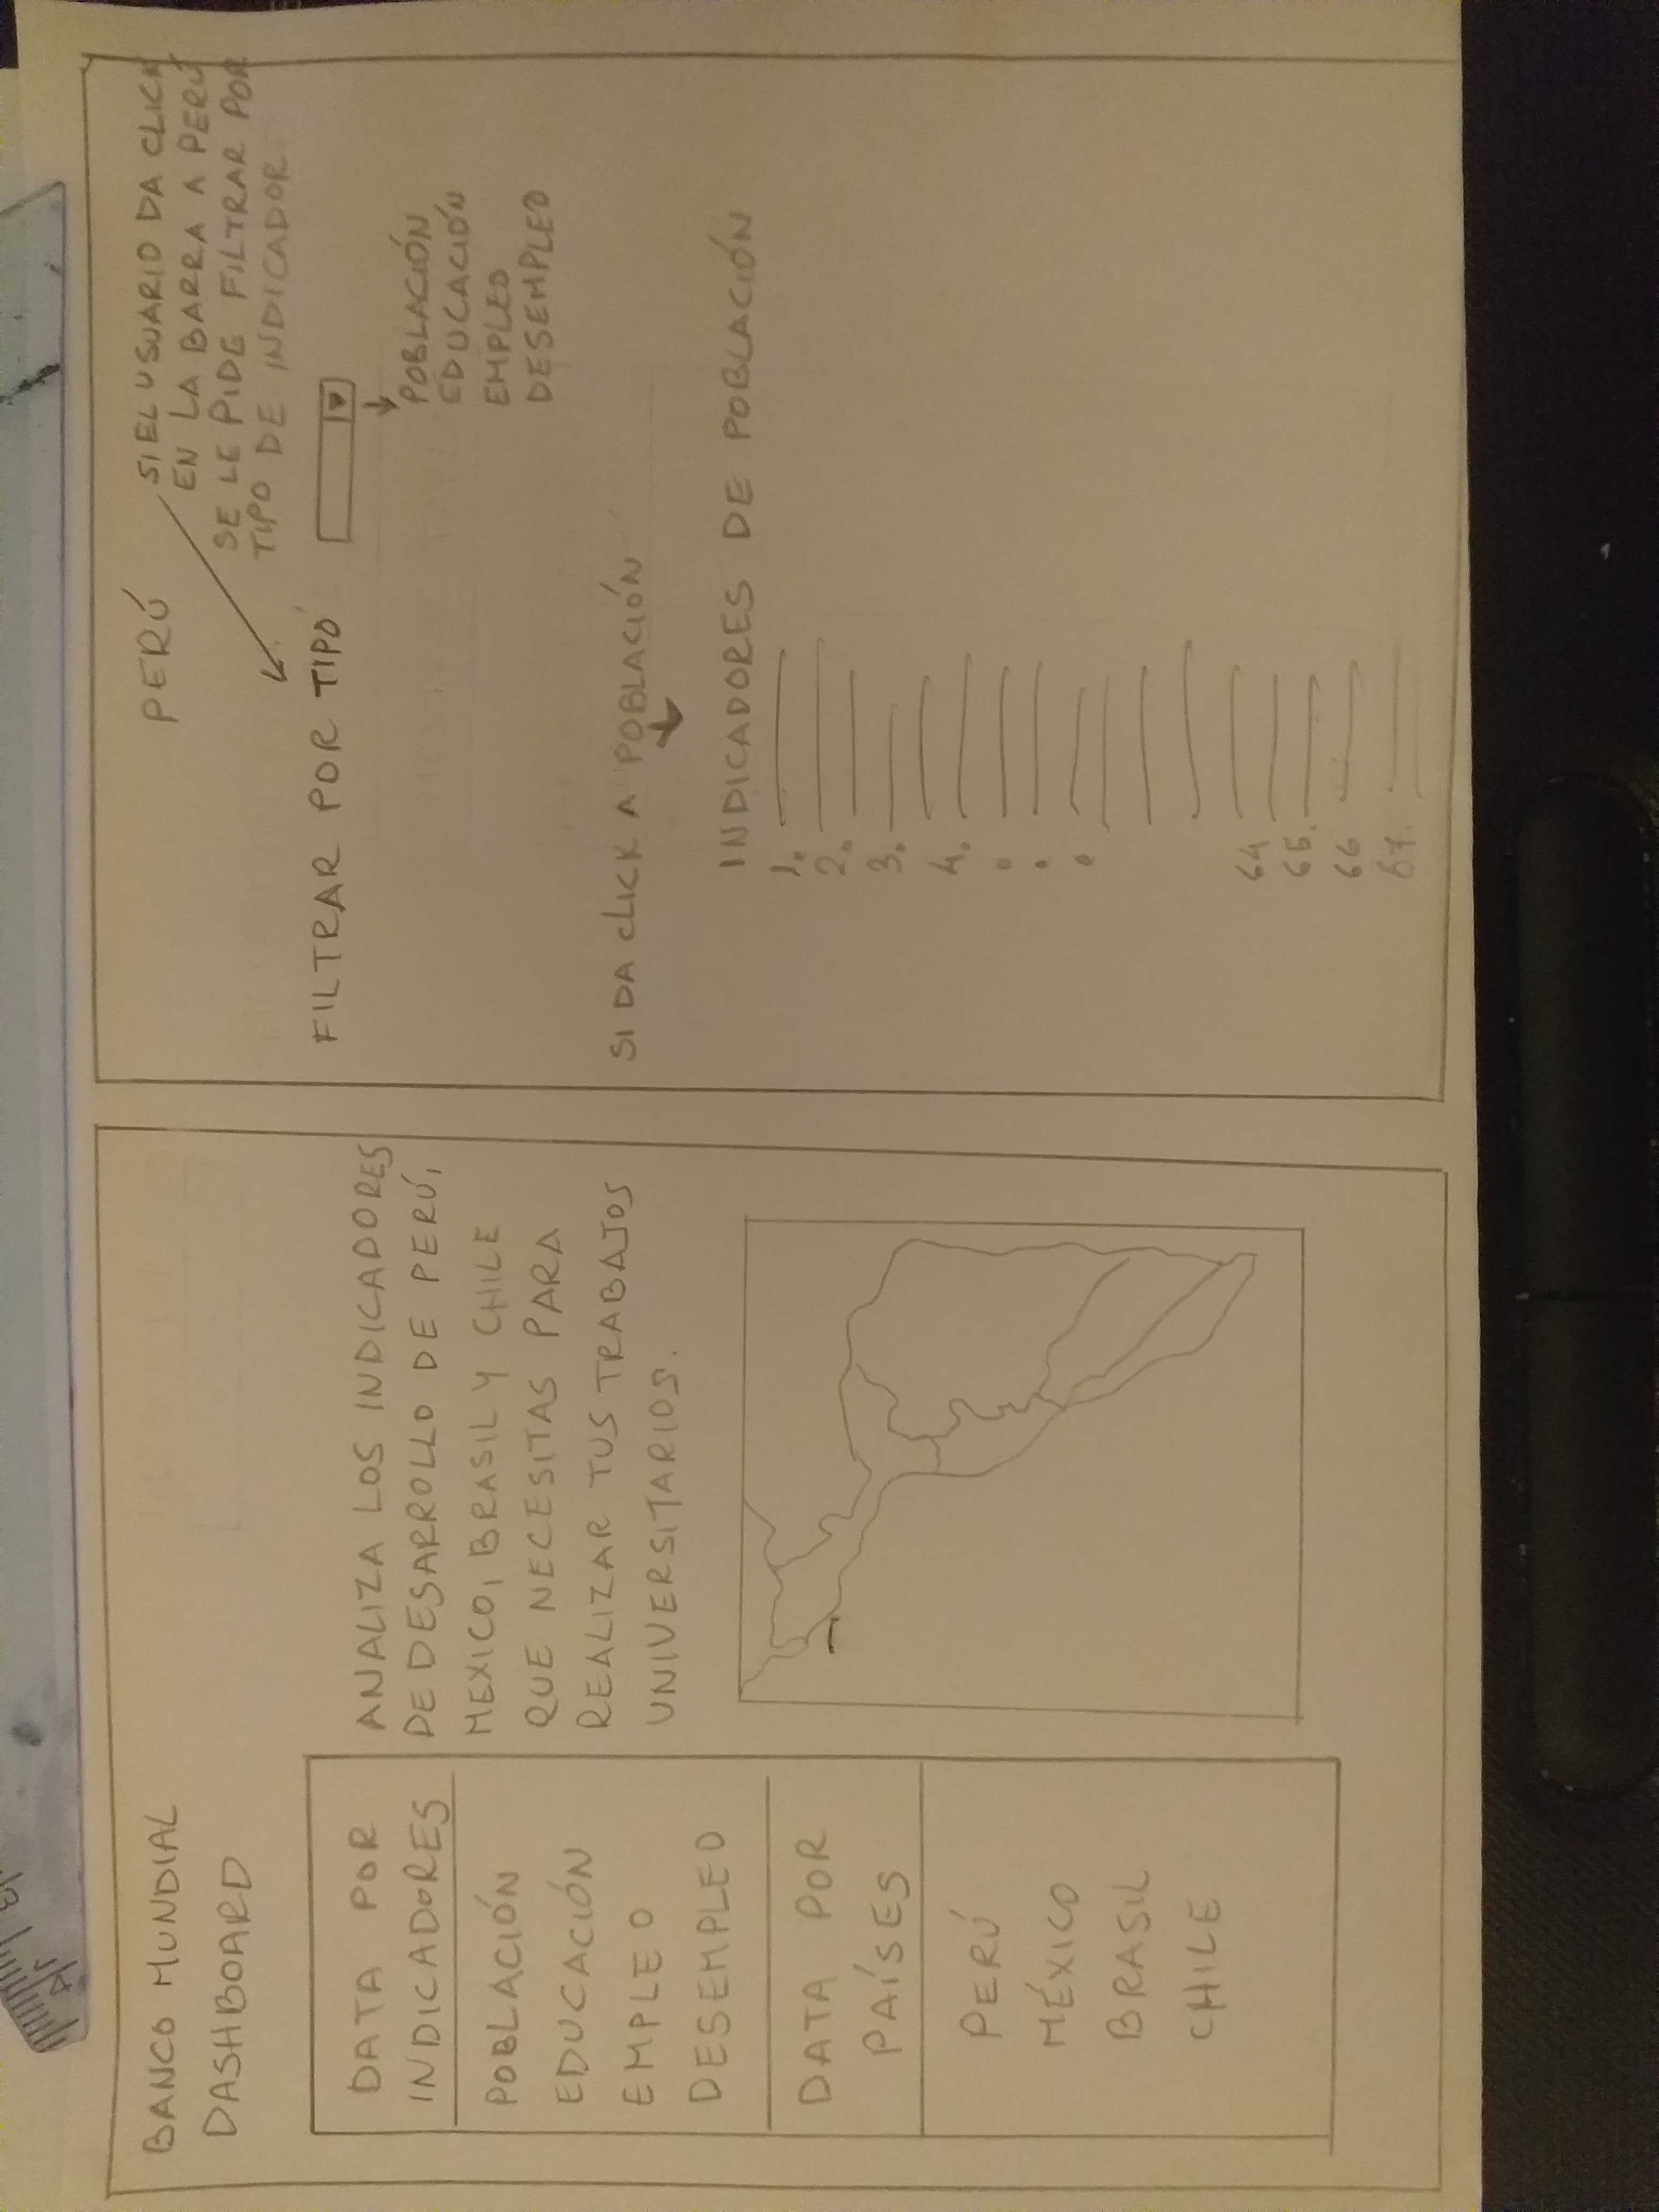 BANCO MUNDIAL
DASHBOARD
DATA POR
INDICADORES
POBLACIÓN
EDUCACIÓN
EMPLEO
DESEMPLEO
DATA POR
PAÍSES
PERÚ
MÉXICO
BRASIL
CHILE
ANALIZA LOS INDICADORES
DE DESARROLLO DE PERÚ,
MEXICO, BRASIL Y CHILE
QUE NECESITAS PARA
REALIZAR TUS TRABAJOS
UNIVERSITARIOS.
PERÚ
SI EL USUARIO DA CLICK
EN LA BARRA A PERÚ
SE LE PIDE FILTRAR POR
TIPO DE INDICADOR
FILTRAR POR TIPO
POBLACIÓN
EDUCACIÓN
EMPLEO
DESEMPLEO
SI DA CLICK A POBLACIÓN
INDICADORES DE POBLACIÓN
1.
2.
3.
4.
64
65.
66
67.